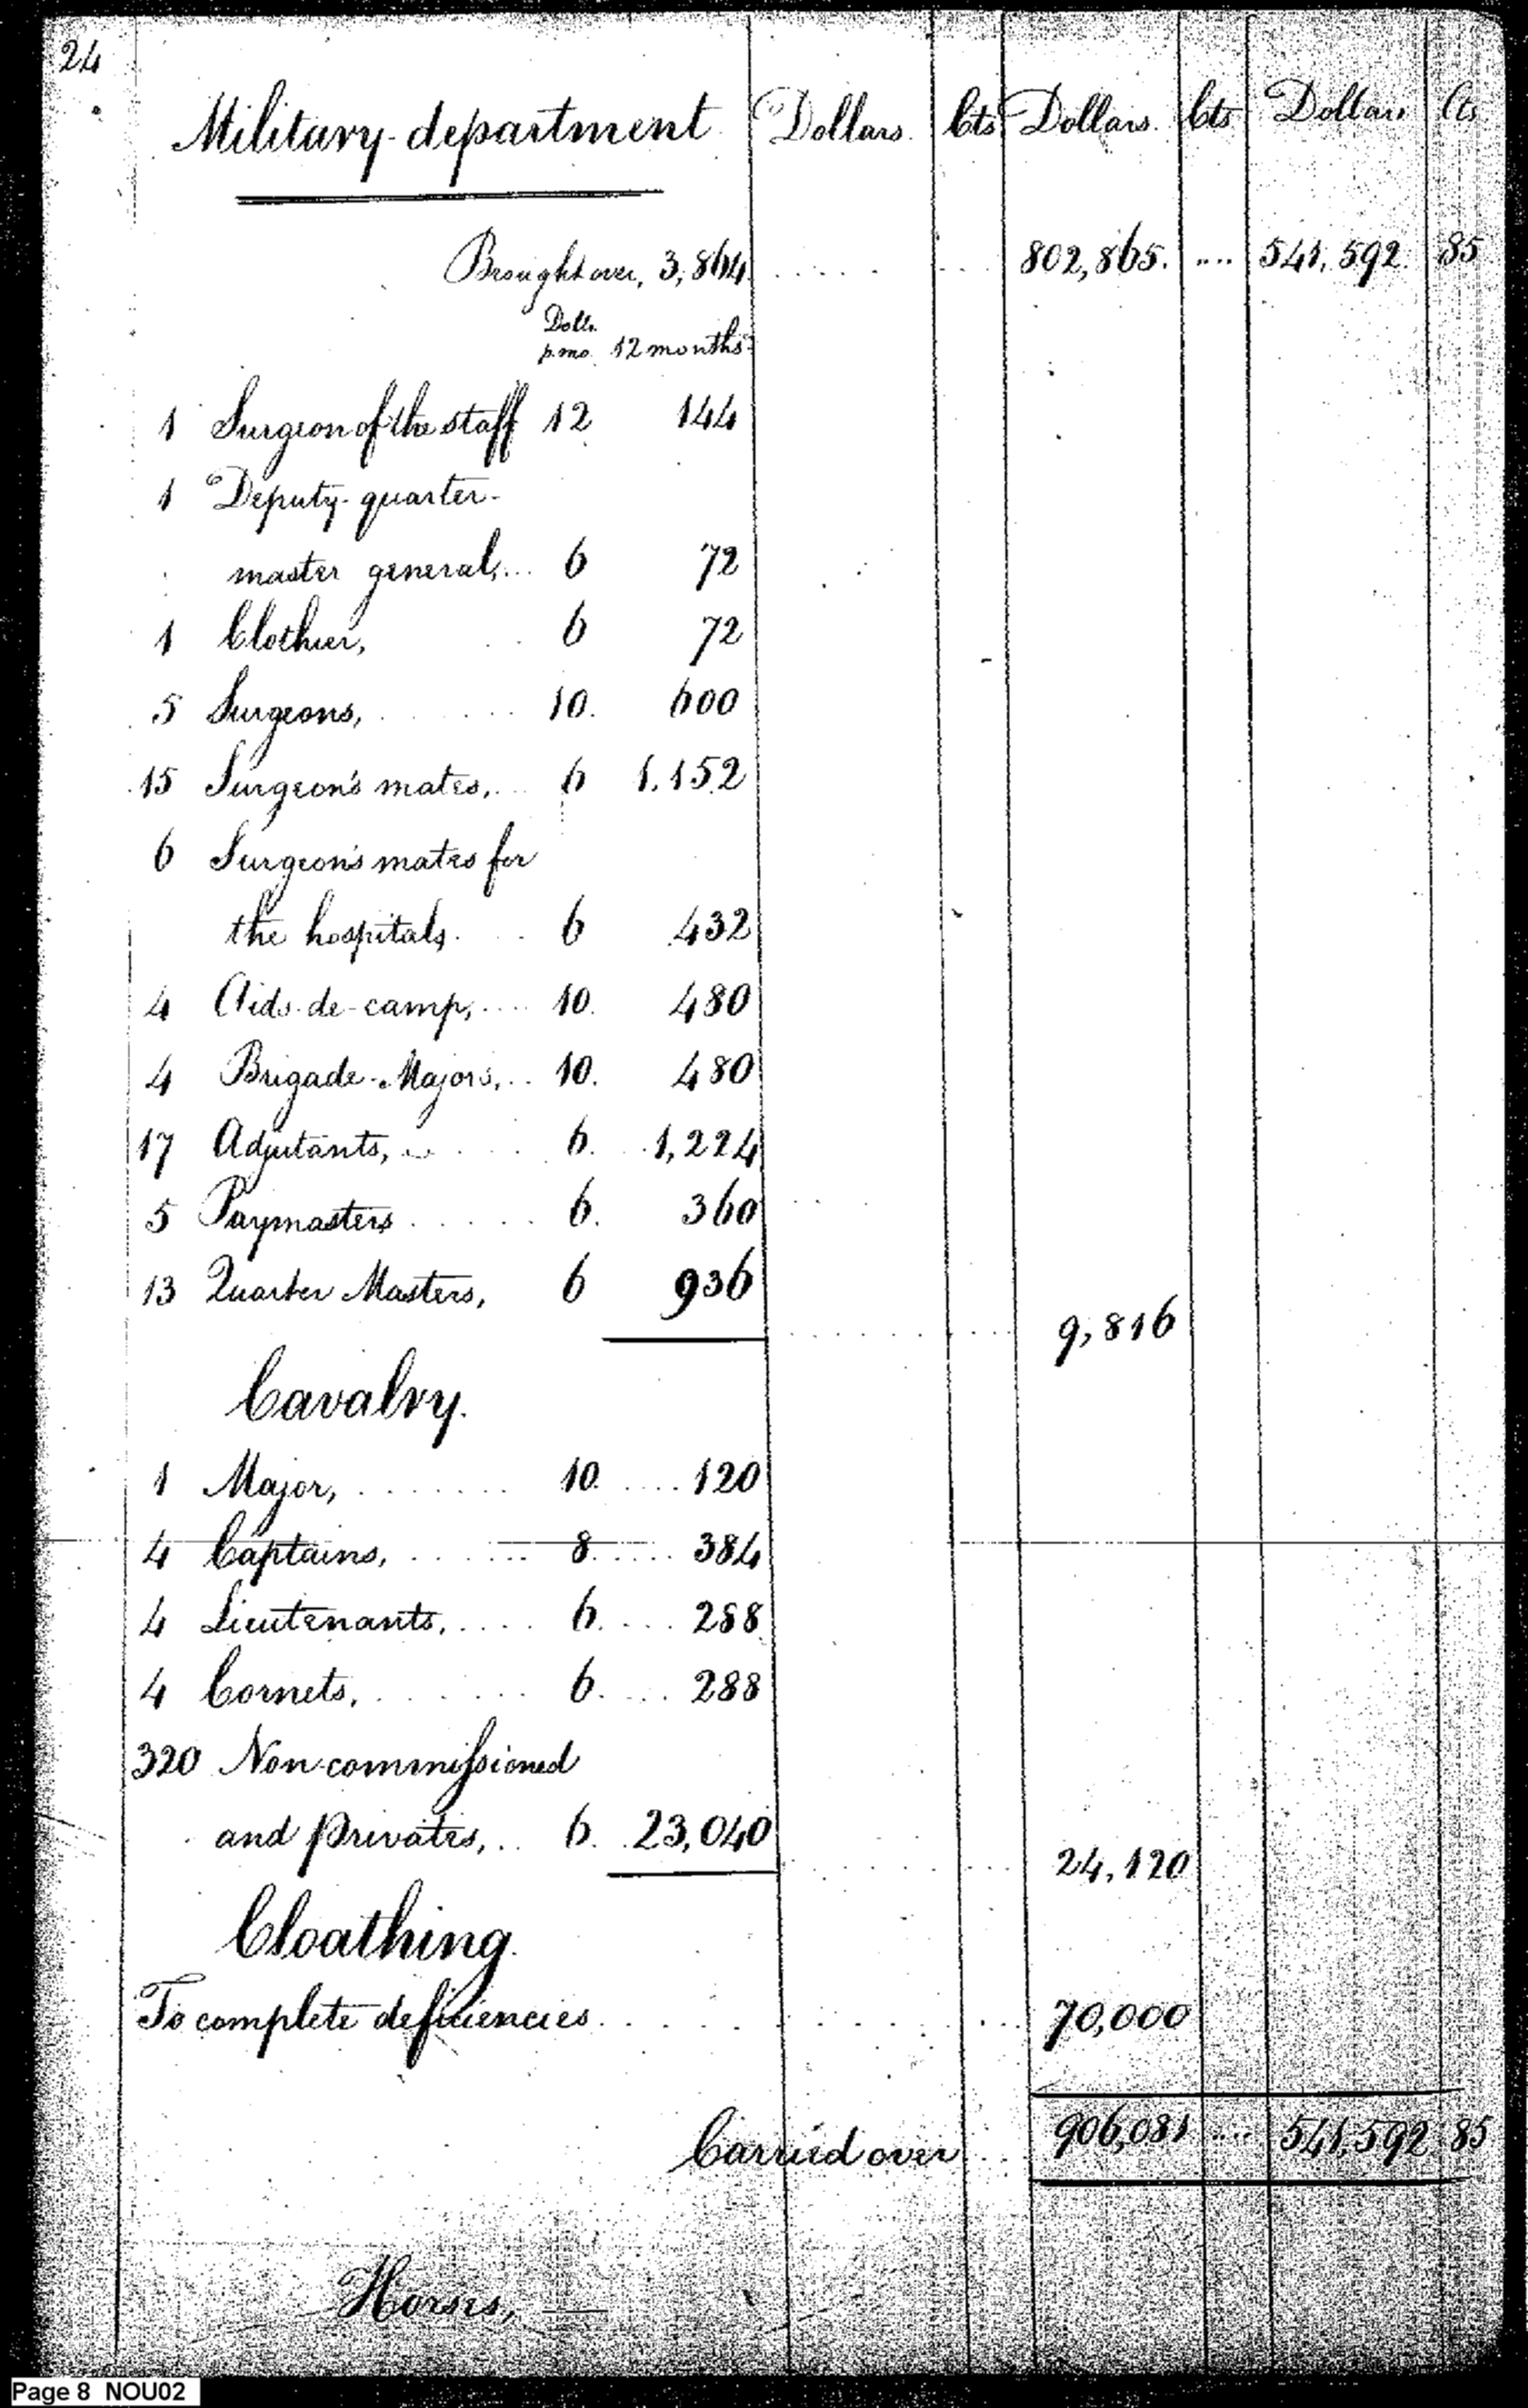 24
Military department Dollars. Cts Dollars. Cts Dollars Cts
Brought over, 3,864 802,865. 541,592. 85
Dolls.
p. mo. 12 months
1 Surgeon of the staff 12 144
1 Deputy-quarter-
master general, 6 72
1 Clothier, 6 72
5 Surgeons, 10. 600
15 Surgeon's mates, 6 1,152
6 Surgeon's mates for
the hospitals 6 432
4 Aids-de-camp, 10. 480
4 Brigade-Majors, 10. 480
17 Adjutants, 6. 1,224
5 Paymasters 6. 360
13 Quarter Masters, 6 936
9,816
Cavalry.
1 Major, 10. 120
4 Captains, 8. 384
4 Lieutenants, 6. 288
4 Cornets, 6. 288
320 Non-commissioned
and Privates, 6. 23,040
24,120
Cloathing.
To complete deficiencies 70,000
Carried over 906,081 541,592 85
Horses,
Page 8 NOU02